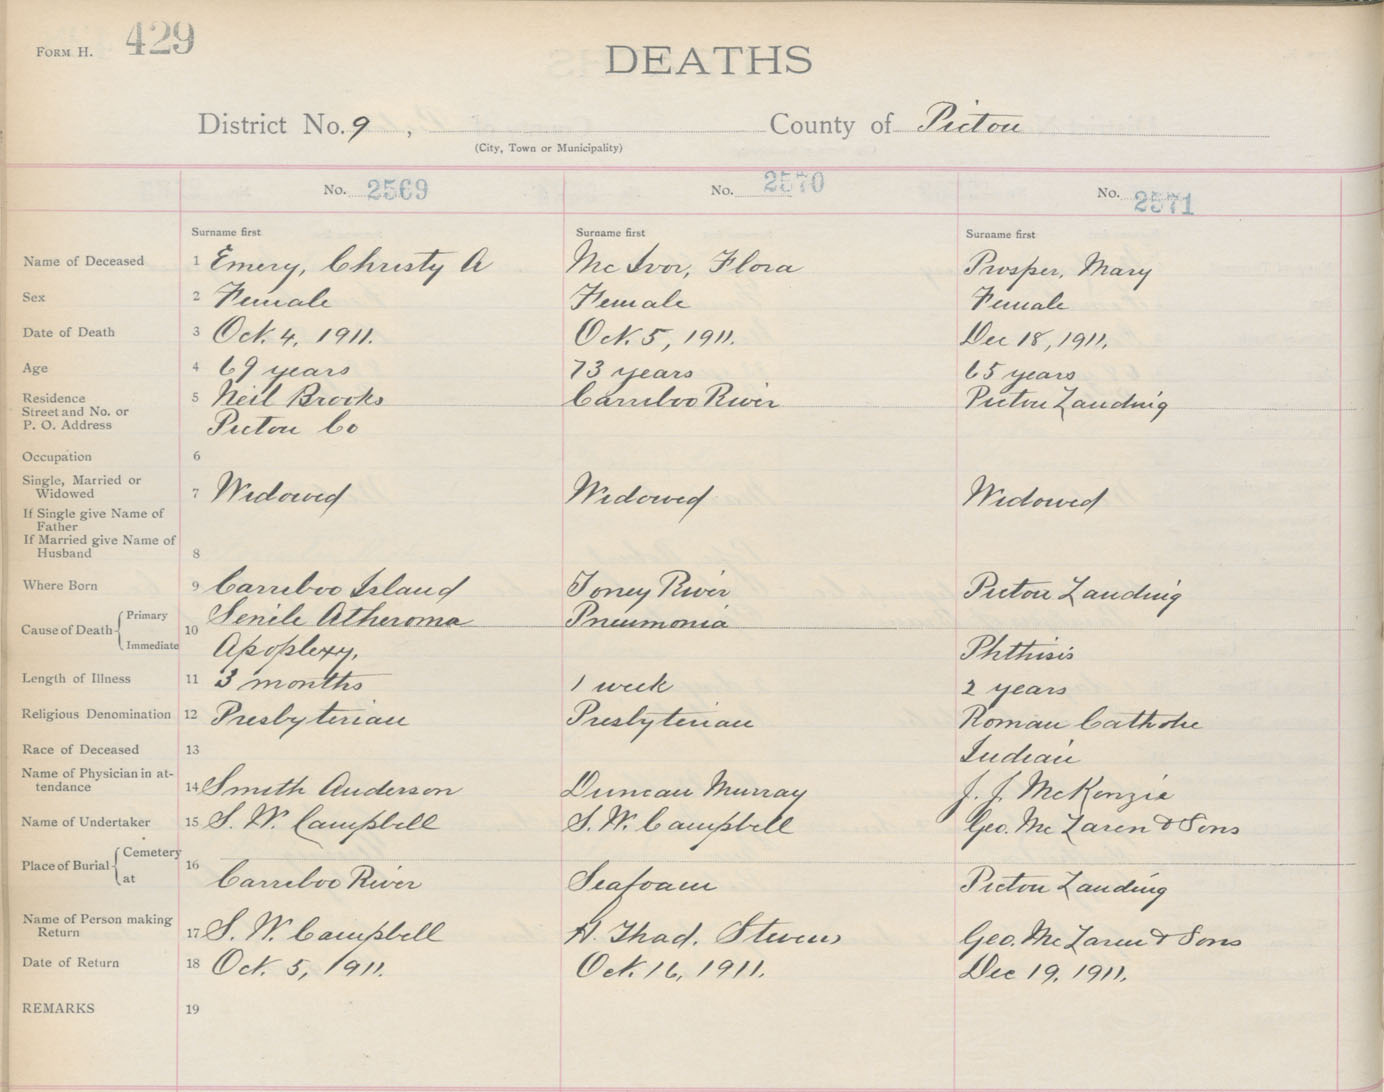 FORM H. 429
DEATHS
District No. 9 , County of Pictou
(City, Town or Municipality)
No. 2569 No. 2570 No. 2571
Surname first Surname first Surname first
Name of Deceased 1 Emery, Christy A Mc Ivor, Flora Prosper, Mary
Sex 2 Female Female Female
Date of Death 3 Oct. 4, 1911. Oct. 5, 1911. Dec 18, 1911.
Age 4 69 years 73 years 65 years
Residence 5 Neil Brooks Carriboo River Pictou Landing
Street and No. or
P. O. Address Pictou Co
Occupation 6
Single, Married or
Widowed 7 Widowed Widowed Widowed
If Single give Name of
Father
If Married give Name of
Husband 8
Where Born 9 Carriboo Island Toney River Pictou Landing
Cause of Death Primary 10 Senile Atheroma Pneumonia
Immediate Apoplexy. Phthisis
Length of Illness 11 3 months 1 week 2 years
Religious Denomination 12 Presbyterian Presbyterian Roman Catholic
Race of Deceased 13 Indian
Name of Physician in at-
tendance 14 Smith Anderson Duncan Murray J. J. McKenzie
Name of Undertaker 15 S. W. Campbell S. W. Campbell Geo. Mc Laren & Sons
Place of Burial Cemetery 16
at Carriboo River Seafoam Pictou Landing
Name of Person making
Return 17 S. W. Campbell H. Thad. Stevens Geo. Mc Laren & Sons
Date of Return 18 Oct. 5, 1911. Oct. 16, 1911. Dec 19, 1911.
REMARKS 19